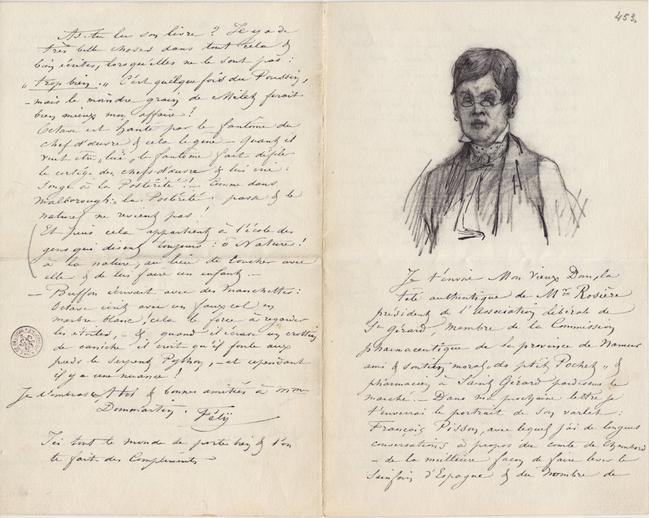 As-tu lu son livre ? Il y a de
très belles choses dans tout cela &
bien écrites, lorsqu'elles ne le sont pas :
"trop bien." C'est quelque fois du Poussin,
– mais le moindre grain de Millet ferait
bien mieux mon affaire !
Octave est hanté par le fantôme du
chef d'œuvre & cela le gêne – Quand il
veut être, lui, le fantôme fait défiler
le cortège des chefs d'œuvre & lui crie :
Songe à la Postérité ! – Comme dans
Malborough : la Postérité passe & le
naturel ne revient pas !
Et puis cela appartient à l'école des
gens qui disent toujours : ô Nature !
à la nature, au lieu de coucher avec
elle & de lui faire un enfant –
– Buffon écrivait avec des manchettes :
Octave écrit avec un faux col en
marbre blanc, cela le force à regarder
les étoiles, – & quand il écrase un crottin
de caniche il croit qu'il foule aux
pieds le serpent Python, – et cependant
il y a une nuance !
Je t'embrasse & bonnes amitiés à Mme
Dommartin. Féli
Ici tout le monde se porte bien & l'on
te fait des compliments –
453.
Je t'envoie Mon Vieux Dom, la
tête authentique de Mr Rosière
président de l'Association libérale de
St Gérard, membre de la Commission
pharmaceutique de la province de Namur
ami & soutien moral de ptit Pochet, &
pharmacien à Saint Gérard pardessus le
marché. – Dans ma prochaine lettre je
t'enverrai le portrait de son varlet :
François Pisson, avec lequel j'ai de longues
conversations à propos du comte de Chambord
– de la meilleure façon de faire lever le
Sainfoin d'Espagne & du Nombre de